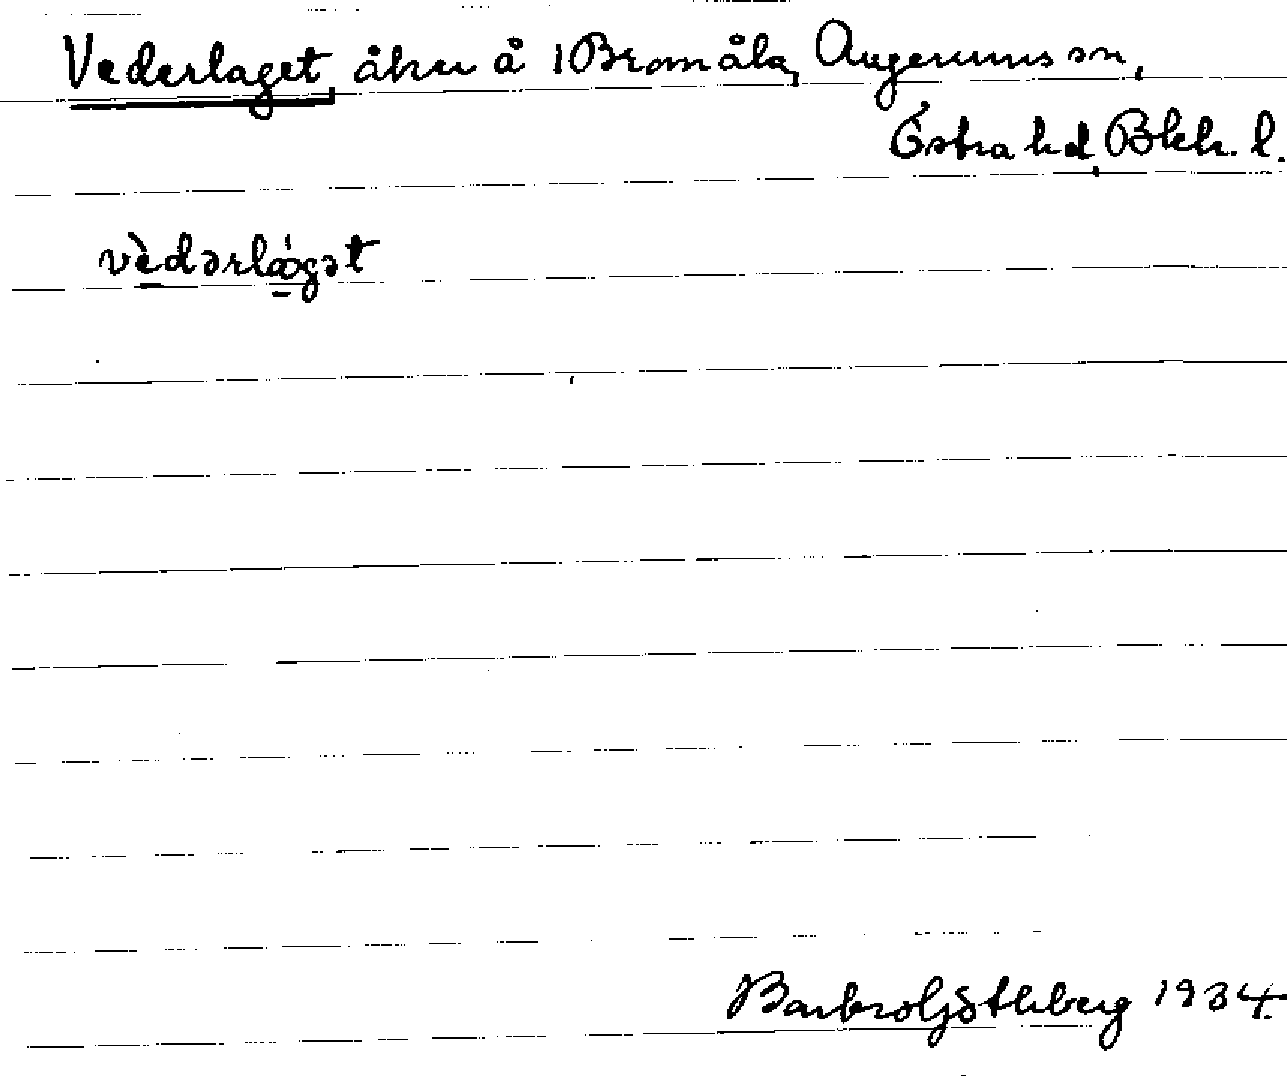 Vederlaget åker å 1 Bromåla, Augerums sn,
Östra hd, Blek. l.
vèdərlágət
Barbro Göthberg 1934.